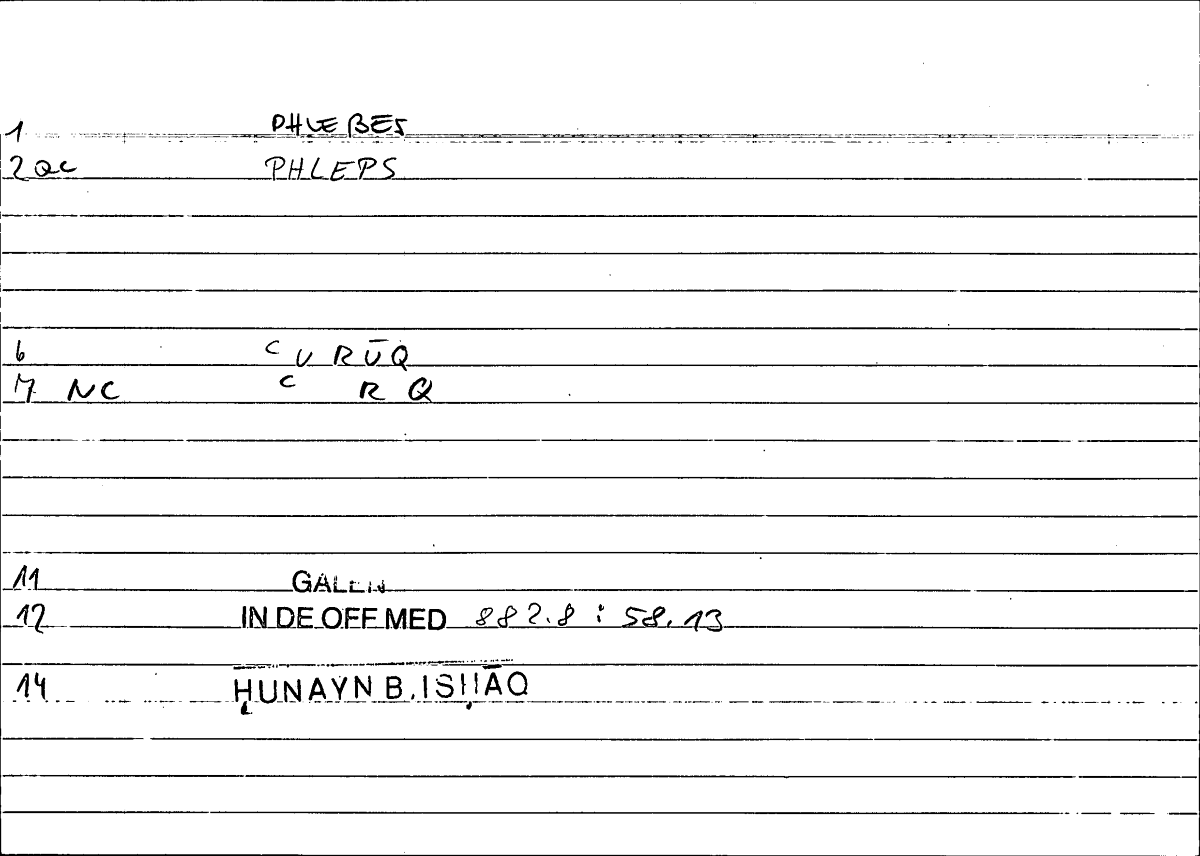 1 PHLEBES
2 ac PHLEPS
6 ᶜURŪQ
7 NC ᶜ R Q
11 GALEN
12 IN DE OFF MED 882.8 : 58.13
14 ḤUNAYN B. ISḤĀQ